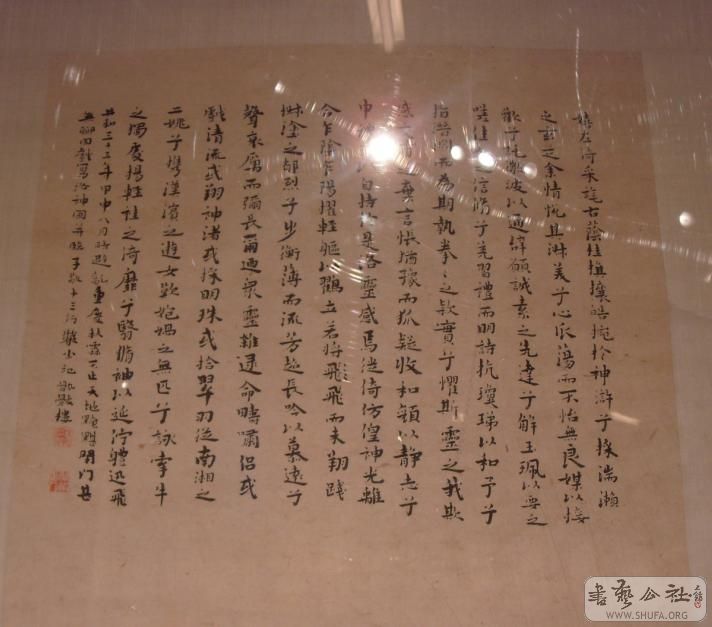 嬉左倚采旄右蔭桂旗攘皓捥於神滸兮採湍瀨
之玄芝余情悅其淑美兮心振蕩而不怡無良媒以接
歡兮托微波以通辭願誠素之先達兮解玉珮以要之
嗟佳之信脩兮羌習禮而明詩抗瓊珶以和予兮
指潛淵而為期執拳々之款實兮懼斯靈之我欺
感之棄言悵猶豫而狐疑收和顏以靜志兮
申以自持於是洛靈感焉徙倚仿偟神光離
合乍陰乍陽擢輕軀以鶴立若將飛飛而未翔踐
椒塗之郁烈兮步衡薄而流芳超長吟以慕遠兮
聲哀厲而彌長爾迺眾靈雜遝命疇嘯侶或
戲清流或翔神渚或採明珠或拾翠羽從南湘之
二姚兮攜漢濱之遊女歎匏媧之無匹兮詠牽牛
之獨處揚輕袿之猗靡兮翳脩袖以延佇體迅飛
共和三十三年甲申八月時避亂重慶秋霖不止天地黯黮閉門甚
無聊因戲寫洛神圖并臨子敬十三行小記
書藝公社
WWW.SHUFA.ORG